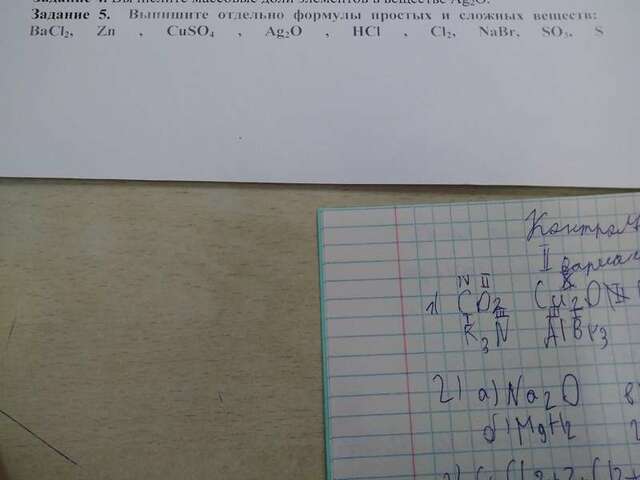 Задание 4. Вычислите массовые доли элементов в веществе Ag₂O.
Задание 5. Выпишите отдельно формулы простых и сложных веществ:
BaCl₂, Zn , CuSO₄ , Ag₂O , HCl , Cl₂, NaBr, SO₃, S
II
IV II
1) CO₂ Cu₂O
I III III I
K₃N AlBr₃
2) а) Na₂O
б) MgH₂